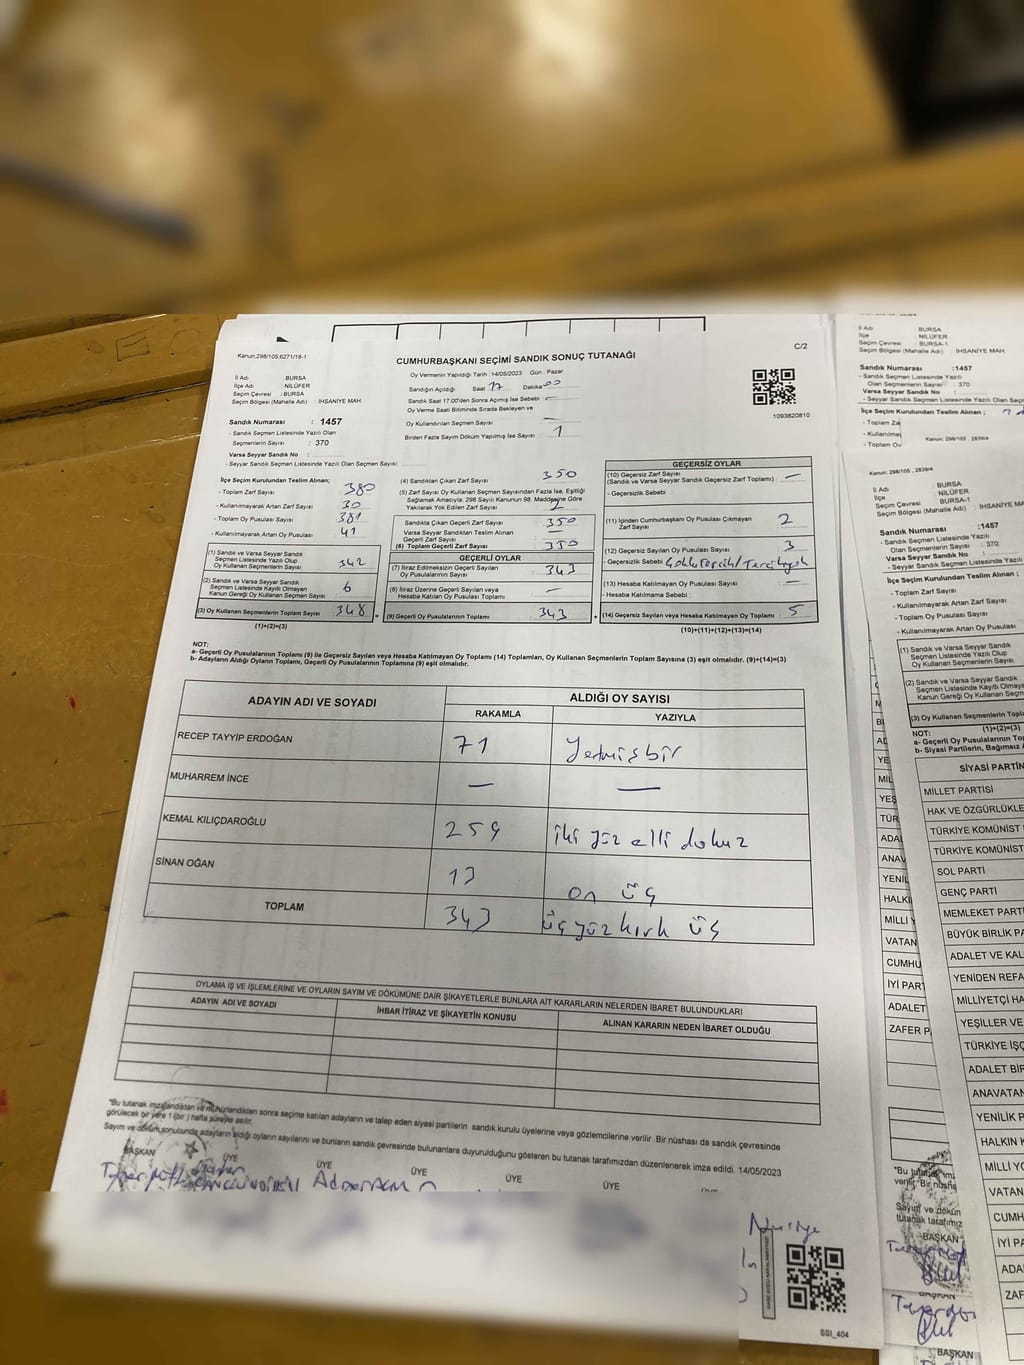 Kanun:298/105;6271/18-1
C/2
CUMHURBAŞKANI SEÇİMİ SANDIK SONUÇ TUTANAĞI
İl Adı : BURSA
İlçe Adı : NİLÜFER
Seçim Çevresi : BURSA
Seçim Bölgesi (Mahalle Adı) : İHSANİYE MAH
Sandık Numarası : 1457
- Sandık Seçmen Listesinde Yazılı Olan
Seçmenlerin Sayısı : 370
Varsa Seyyar Sandık No :
- Seyyar Sandık Seçmen Listesinde Yazılı Olan Seçmen Sayısı:
Oy Vermenin Yapıldığı Tarih : 14/05/2023 Gün : Pazar
Sandığın Açıldığı Saat 17 Dakika 00
Sandık Saat 17.00'den Sonra Açılmış İse Sebebi : —
Oy Verme Saati Bitiminde Sırada Bekleyen ve
Oy Kullandırılan Seçmen Sayısı : —
Birden Fazla Sayım Döküm Yapılmış İse Sayısı : 1
1093820810
İlçe Seçim Kurulundan Teslim Alınan;
- Toplam Zarf Sayısı : 380
- Kullanılmayarak Artan Zarf Sayısı : 30
- Toplam Oy Pusulası Sayısı : 381
- Kullanılmayarak Artan Oy Pusulası : 41
(1) Sandık ve Varsa Seyyar Sandık
Seçmen Listesinde Yazılı Olup
Oy Kullanan Seçmenlerin Sayısı : 342
(2) Sandık ve Varsa Seyyar Sandık
Seçmen Listesinde Kayıtlı Olmayan
Kanun Gereği Oy Kullanan Seçmen Sayısı : 6
(3) Oy Kullanan Seçmenlerin Toplam Sayısı : 348
(1)+(2)=(3)
(4) Sandıktan Çıkan Zarf Sayısı : 350
(5) Zarf Sayısı Oy Kullanan Seçmen Sayısından Fazla İse, Eşitliği
Sağlamak Amacıyla, 298 Sayılı Kanunun 98. Maddesine Göre
Yakılarak Yok Edilen Zarf Sayısı : 2
Sandıkta Çıkan Geçerli Zarf Sayısı : 350
Varsa Seyyar Sandıktan Teslim Alınan
Geçerli Zarf Sayısı : —
(6) Toplam Geçerli Zarf Sayısı : 350
GEÇERLİ OYLAR
(7) İtiraz Edilmeksizin Geçerli Sayılan
Oy Pusulalarının Sayısı : 343
(8) İtiraz Üzerine Geçerli Sayılan veya
Hesaba Katılan Oy Pusulası Toplamı : —
(9) Geçerli Oy Pusulalarının Toplamı : 343
GEÇERSİZ OYLAR
(10) Geçersiz Zarf Sayısı : —
(Sandık ve Varsa Seyyar Sandık Geçersiz Zarf Toplamı)
- Geçersizlik Sebebi :
(11) İçinden Cumhurbaşkanı Oy Pusulası Çıkmayan
Zarf Sayısı : 2
(12) Geçersiz Sayılan Oy Pusulası Sayısı : 3
- Geçersizlik Sebebi :
(13) Hesaba Katılmayan Oy Pusulası Sayısı : —
- Hesaba Katılmama Sebebi :
(14) Geçersiz Sayılan veya Hesaba Katılmayan Oy Toplamı : 5
(10)+(11)+(12)+(13)=(14)
NOT:
a- Geçerli Oy Pusulalarının Toplamı (9) ile Geçersiz Sayılan veya Hesaba Katılmayan Oy Toplamı (14) Toplamları, Oy Kullanan Seçmenlerin Toplam Sayısına (3) eşit olmalıdır. (9)+(14)=(3)
b- Adayların Aldığı Oyların Toplamı, Geçerli Oy Pusulalarının Toplamına (9) eşit olmalıdır.
ADAYIN ADI VE SOYADI ALDIĞI OY SAYISI
RAKAMLA YAZIYLA
RECEP TAYYİP ERDOĞAN 71 Yetmişbir
MUHARREM İNCE — —
KEMAL KILIÇDAROĞLU 259 iki yüz elli dokuz
SİNAN OĞAN 13 on üç
TOPLAM 343 üçyüzkırk üç
OYLAMA İŞ VE İŞLEMLERİNE VE OYLARIN SAYIM VE DÖKÜMÜNE DAİR ŞİKAYETLERLE BUNLARA AİT KARARLARIN NELERDEN İBARET BULUNDUKLARI
ADAYIN ADI VE SOYADI İHBAR İTİRAZ VE ŞİKAYETİN KONUSU ALINAN KARARIN NEDEN İBARET OLDUĞU
"Bu tutanak imzalandıktan ve mühürlendikten sonra seçime katılan adayların ve talep eden siyasi partilerin sandık kurulu üyelerine veya gözlemcilerine verilir. Bir nüshası da sandık çevresinde
görülecek bir yere 1 (bir) hafta süreyle asılır.
Sayım ve döküm sonucunda adayların aldığı oyların sayılarını ve bunların sandık çevresinde bulunanlara duyurulduğunu gösteren bu tutanak tarafımızdan düzenlenerek imza edildi. 14/05/2023
BAŞKAN ÜYE ÜYE ÜYE ÜYE ÜYE
SSI_404
İl Adı : BURSA
İlçe : NİLÜFER
Seçim Çevresi : BURSA-1
Seçim Bölgesi (Mahalle Adı) : İHSANİYE MAH
Sandık Numarası :1457
- Sandık Seçmen Listesinde Yazılı
Olan Seçmenlerin Sayısı : 370
Varsa Seyyar Sandık No :
- Seyyar Sandık Seçmen Listesinde Yazılı Olan Seç
İlçe Seçim Kurulundan Teslim Alınan ;
- Toplam Za
- Kullanılmay
- Toplam Oy
Kanun: 298/105 , 2839/4
İl Adı : BURSA
İlçe : NİLÜFER
Seçim Çevresi : BURSA-1
Seçim Bölgesi (Mahalle Adı) : İHSANİYE MAH
Sandık Numarası :1457
- Sandık Seçmen Listesinde Yazılı
Olan Seçmenlerin Sayısı : 370
Varsa Seyyar Sandık No :
- Seyyar Sandık Seçmen Listesinde Yazılı
İlçe Seçim Kurulundan Teslim Alınan ;
- Toplam Zarf Sayısı
- Kullanılmayarak Artan Zarf Sayısı
- Toplam Oy Pusulası Sayısı
- Kullanılmayarak Artan Oy Pusulası
(1) Sandık ve Varsa Seyyar Sandık
Seçmen Listesinde Yazılı Olup
Oy Kullanan Seçmenlerin Sayısı
(2) Sandık ve Varsa Seyyar Sandık
Seçmen Listesinde Kayıtlı Olmaya
Kanun Gereği Oy Kullanan Seçmen
(3) Oy Kullanan Seçmenlerin Topla
(1)+(2)=(3)
NOT:
a- Geçerli Oy Pusulalarının To
b- Siyasi Partilerin, Bağımsız
SİYASİ PARTİN
MİLLET PARTİSİ
HAK VE ÖZGÜRLÜKLE
TÜRKİYE KOMÜNİST
TÜRKİYE KOMÜNİST
SOL PARTİ
GENÇ PARTİ
MEMLEKET PARTİ
BÜYÜK BİRLİK PA
ADALET VE KAL
YENİDEN REFA
MİLLİYETÇİ HA
YEŞİLLER VE
TÜRKİYE İŞÇ
ADALET BİR
ANAVATAN
YENİLİK P
HALKIN K
MİLLİ YO
VATAN
CUMH
İYİ PA
ADA
ZAF
YENİL
HALKI
MİLLİ Y
VATAN
CUMHU
İYİ PART
ADALET
ZAFER P
BAŞKAN
BAŞKAN